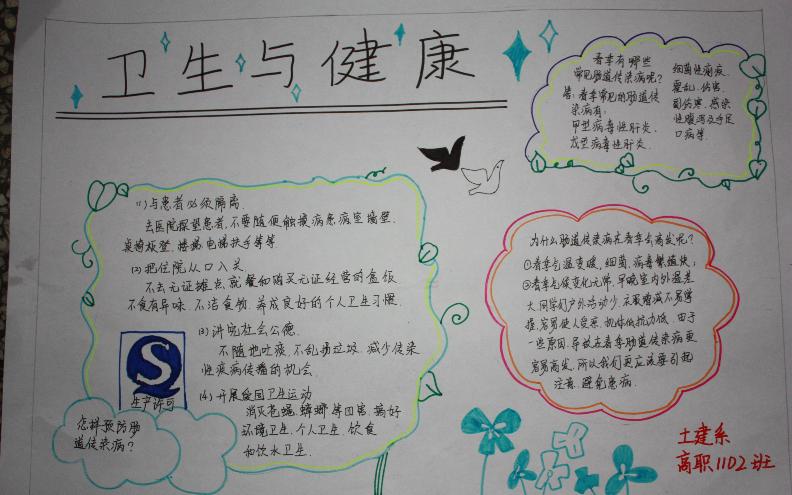 卫生与健康
春季有哪些
常见肠道传染病呢?
答:春季常见的肠道传
染病有:
甲型病毒性肝炎、
戊型病毒性肝炎、
细菌性痢疾、
霍乱、伤寒、
副伤寒、感染
性腹泻及手足
口病等.
(1)与患者必须隔离.
去医院探望患者,不要随便触摸病患病室墙壁、
桌椅板登、楼梯电梯扶手等等.
(2)把住院从口入关
不去无证摊点就餐和购买无证经营的盒饭
不食有异味、不洁食物.养成良好的个人卫生习惯.
(3)讲究社会公德.
不随地吐痰、不乱扔垃圾.减少传染
性疾病传播的机会.
(4)开展爱国卫生运动
消灭苍蝇、蟑螂等四害.搞好
环境卫生、个人卫生、饮食
和饮水卫生.
S
生产许可
怎样预防肠
道传染病?
为什么肠道传染病在春季会高发呢?
①春季气温变暖,细菌、病毒繁殖快;
②春季气候变化无常,早晚室内外温差
大.同学们户外活动少,衣服增减不易掌
握,容易使人受寒,机体低抗力低.由于
一些原因,导致在春季肠道传染病更
容易高发,所以我们更应该要引起
注意.避免患病.
土建系
高职1102班